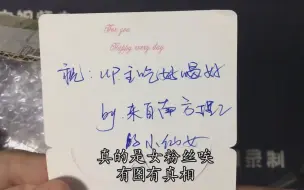 For you
Happy every day
祝：UP主吃好喝好
by 来自南方
的小仙女
真的是女粉丝唉
有图有真相